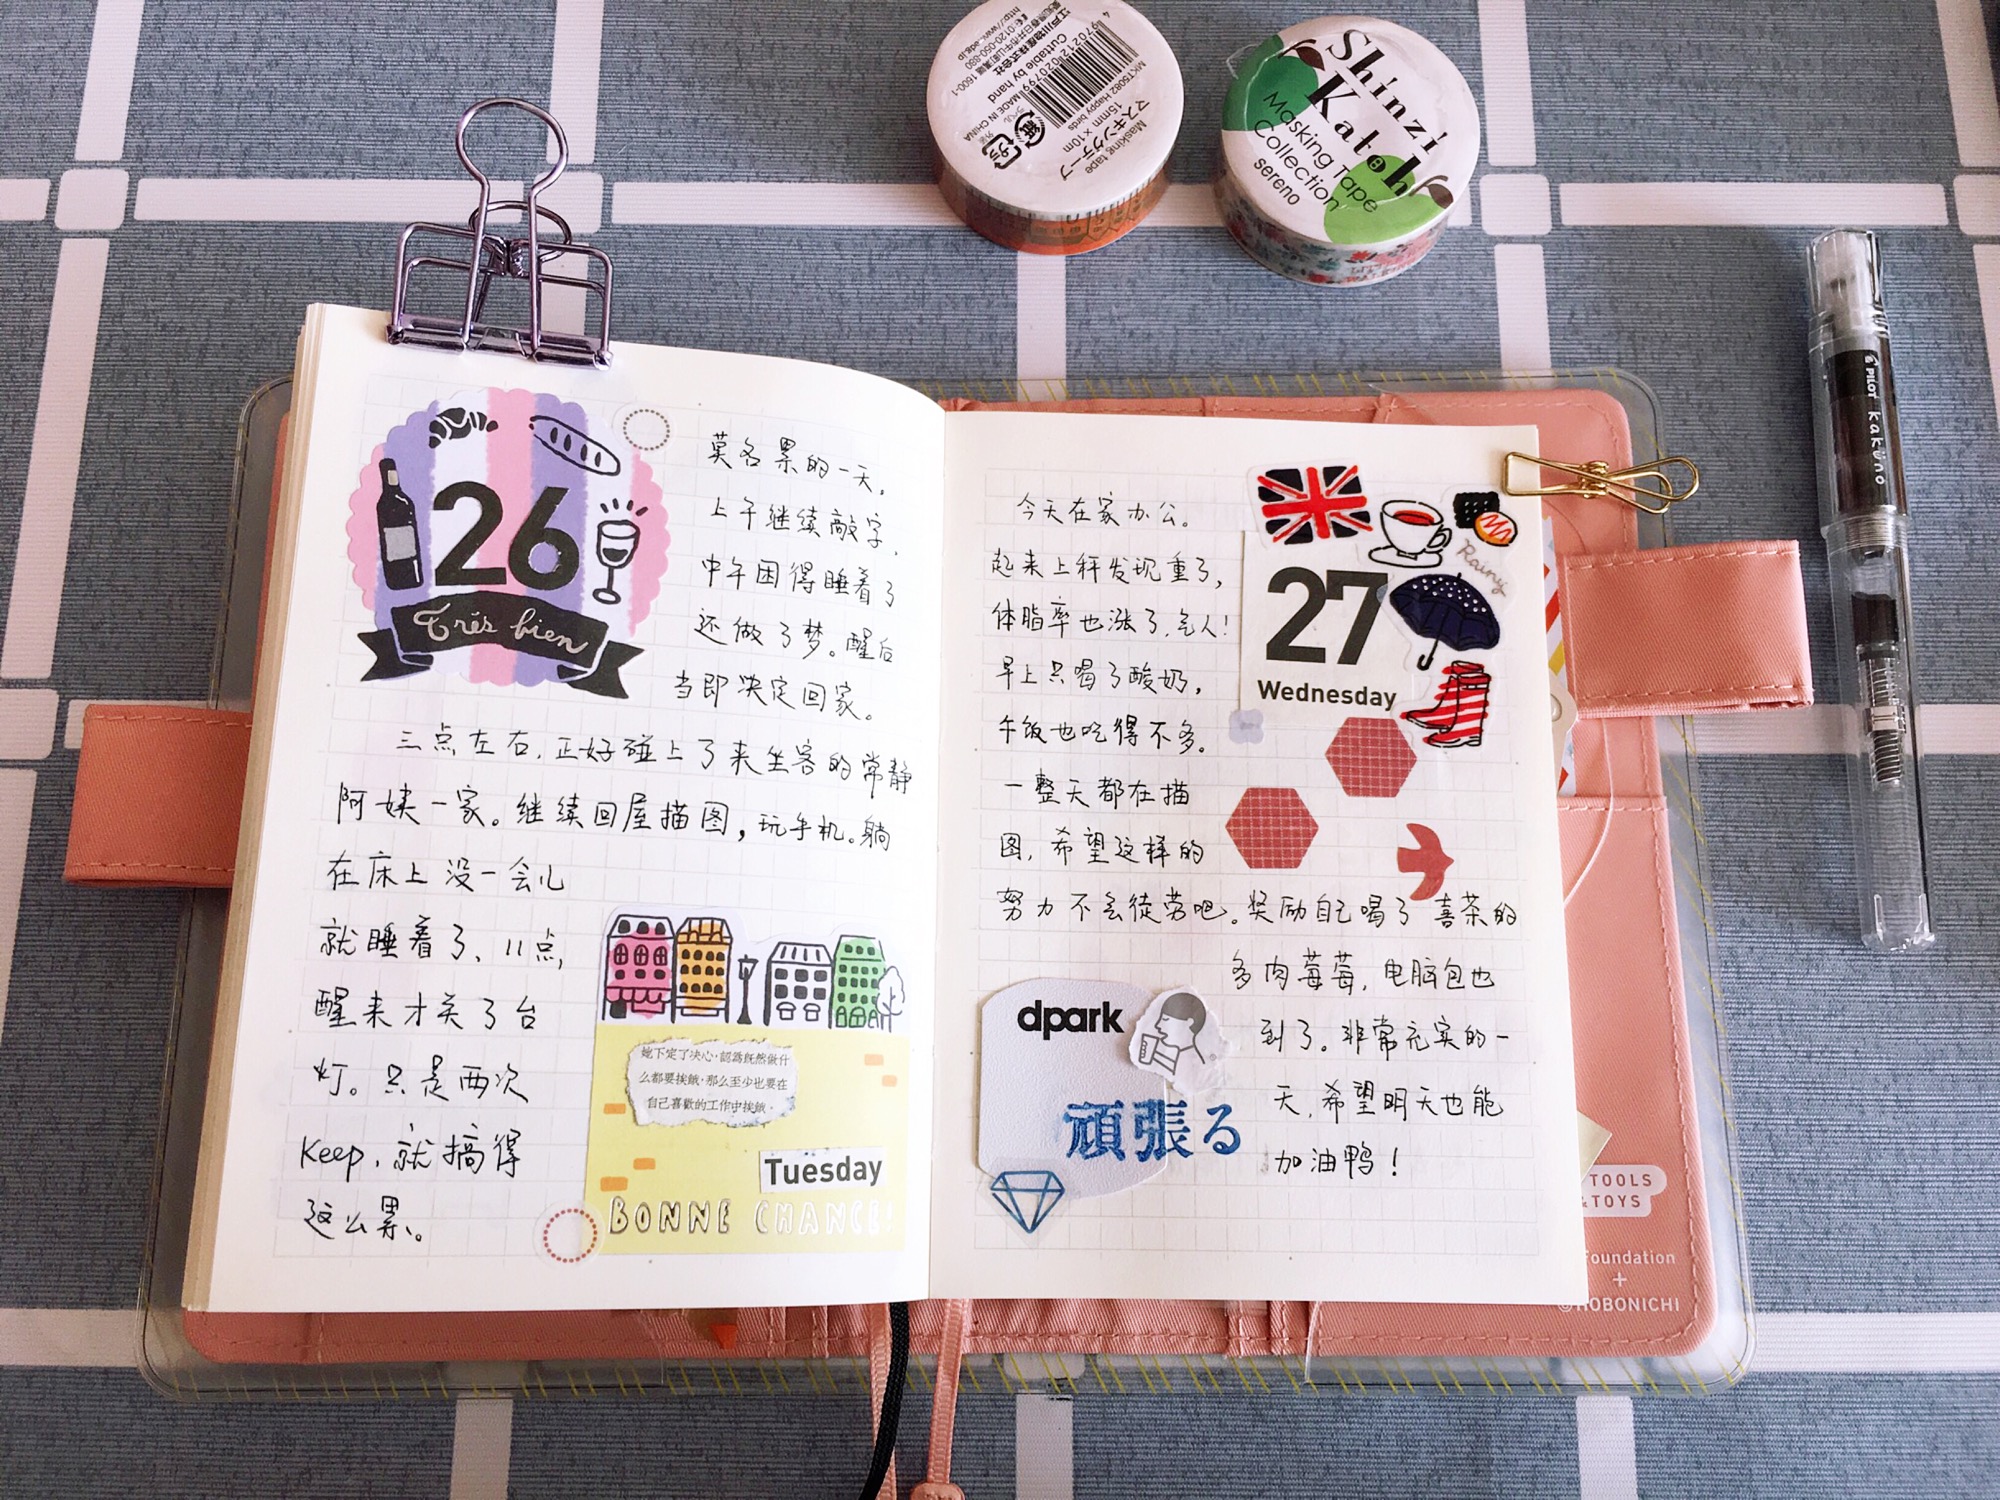 江戸川物産株式会社
Cuttable by hand
MADE IN CHINA
MKT5082 Happy birds
15mm × 10m
マスキングテープ
Masking tape
Shinzi
Katoh
Masking Tape
Collection
sereno
PILOT kakuno
26
Très bien
莫名累的一天。
上午继续敲字,
中午困得睡着了
还做了梦。醒后
当即决定回家。
三点左右,正好碰上了来坐客的常静
阿姨一家。继续回屋描图,玩手机。躺
在床上没一会儿
就睡着了、11点,
醒来才关了台
灯。只是两次
Keep,就搞得
这么累。
她下定了决心,認為既然做什
么都要挨餓,那么至少也要在
自己喜歡的工作中挨餓。
Tuesday
BONNE CHANCE!
27
Wednesday
Rainy
今天在家办公。
起来上秤发现重了,
体脂率也涨了,气人!
早上只喝了酸奶,
午饭也吃得不多。
一整天都在描
图,希望这样的
努力不会徒劳吧。奖励自己喝了喜茶的
多肉莓莓,电脑包也
到了。非常充实的一
天,希望明天也能
加油鸭!
dpark
頑張る
TOOLS
&TOYS
Foundation
+
©HOBONICHI